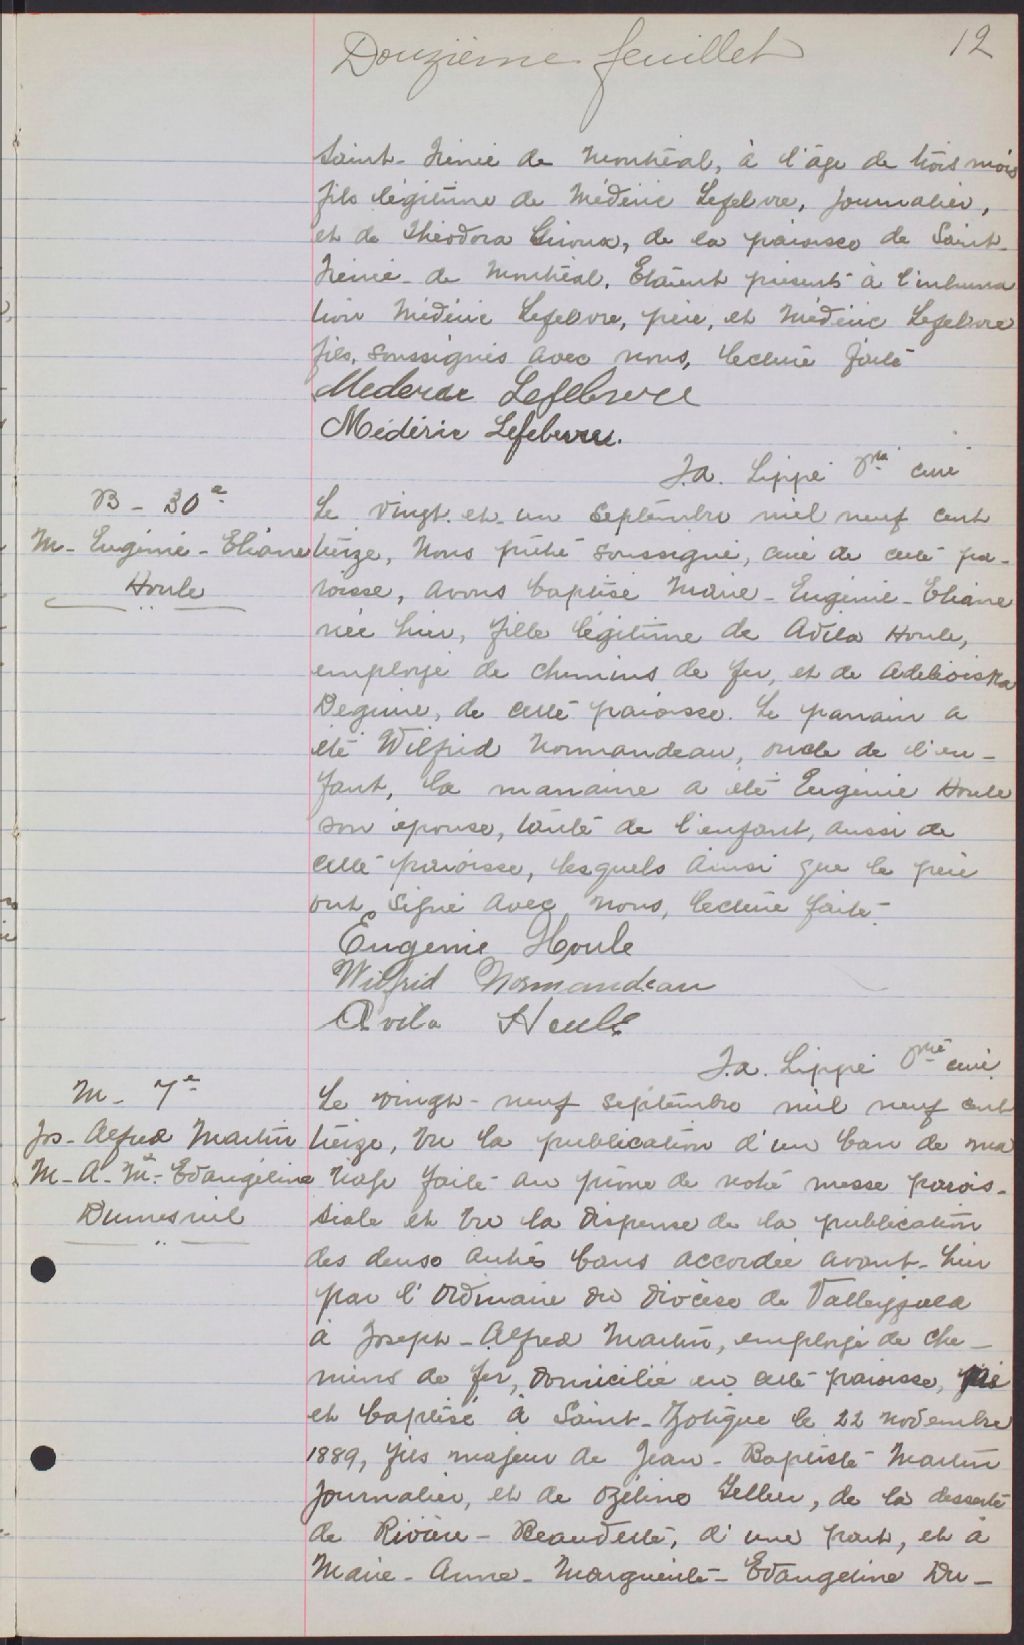 Douzième feuillet
12
Saint-Irénée de Montréal, à l'âge de trois mois
fils légitime de Médéric Lefebvre, journalier,
et de Théodora Giroux, de la paroisse de Saint-
Irénée de Montréal. Étaient présents à l'inhuma
tion Médéric Lefebvre, père, et Médéric Lefebvre
fils, soussignés avec nous, lecture faite
Mederic Lefebvre
Médéric Lefebvre.
J.A. Lippé Ptre curé
B - 30e
M - Eugénie - Eliane
Houle
Le vingt-et-un septembre mil neuf cent
treize, Nous prêtre soussigné, curé de cette pa-
roisse, avons baptisé Marie-Eugénie-Eliane
née hier, fille légitime de Avila Houle,
employé de chemins de fer, et de
Deguire, de cette paroisse. Le parrain a
été Wilfrid Normandeau, oncle de l'en-
fant, la marraine a été Eugénie Houle
son épouse, tante de l'enfant, aussi de
cette paroisse, lesquels ainsi que le père
ont signé avec nous, lecture faite.
Eugenie Houle
Wilfrid Normandeau
Avila Houle
J.A. Lippé Ptre curé
M - 7e
Jos-Alfred Martin
M-A-Mte-Evangéline
Dumesnil
Le vingt-neuf septembre mil neuf cent
treize, vu la publication d'un ban de ma
riage faite au prône de notre messe parois-
siale et vu la dispense de la publication
des deux autres bans accordée avant-hier
par l'Ordinaire du diocèse de Valleyfield
à Joseph-Alfred Martin, employé de che-
mins de fer, domicilié en cette paroisse, né
et baptisé à Saint-Zotique le 22 novembre
1889, fils majeur de Jean-Baptiste Martin
journalier, et de Ozélina Tellier, de la desserte
de Rivière-Beaudette, d'une part, et à
Marie-Anne-Marguerite-Evangeline Du-